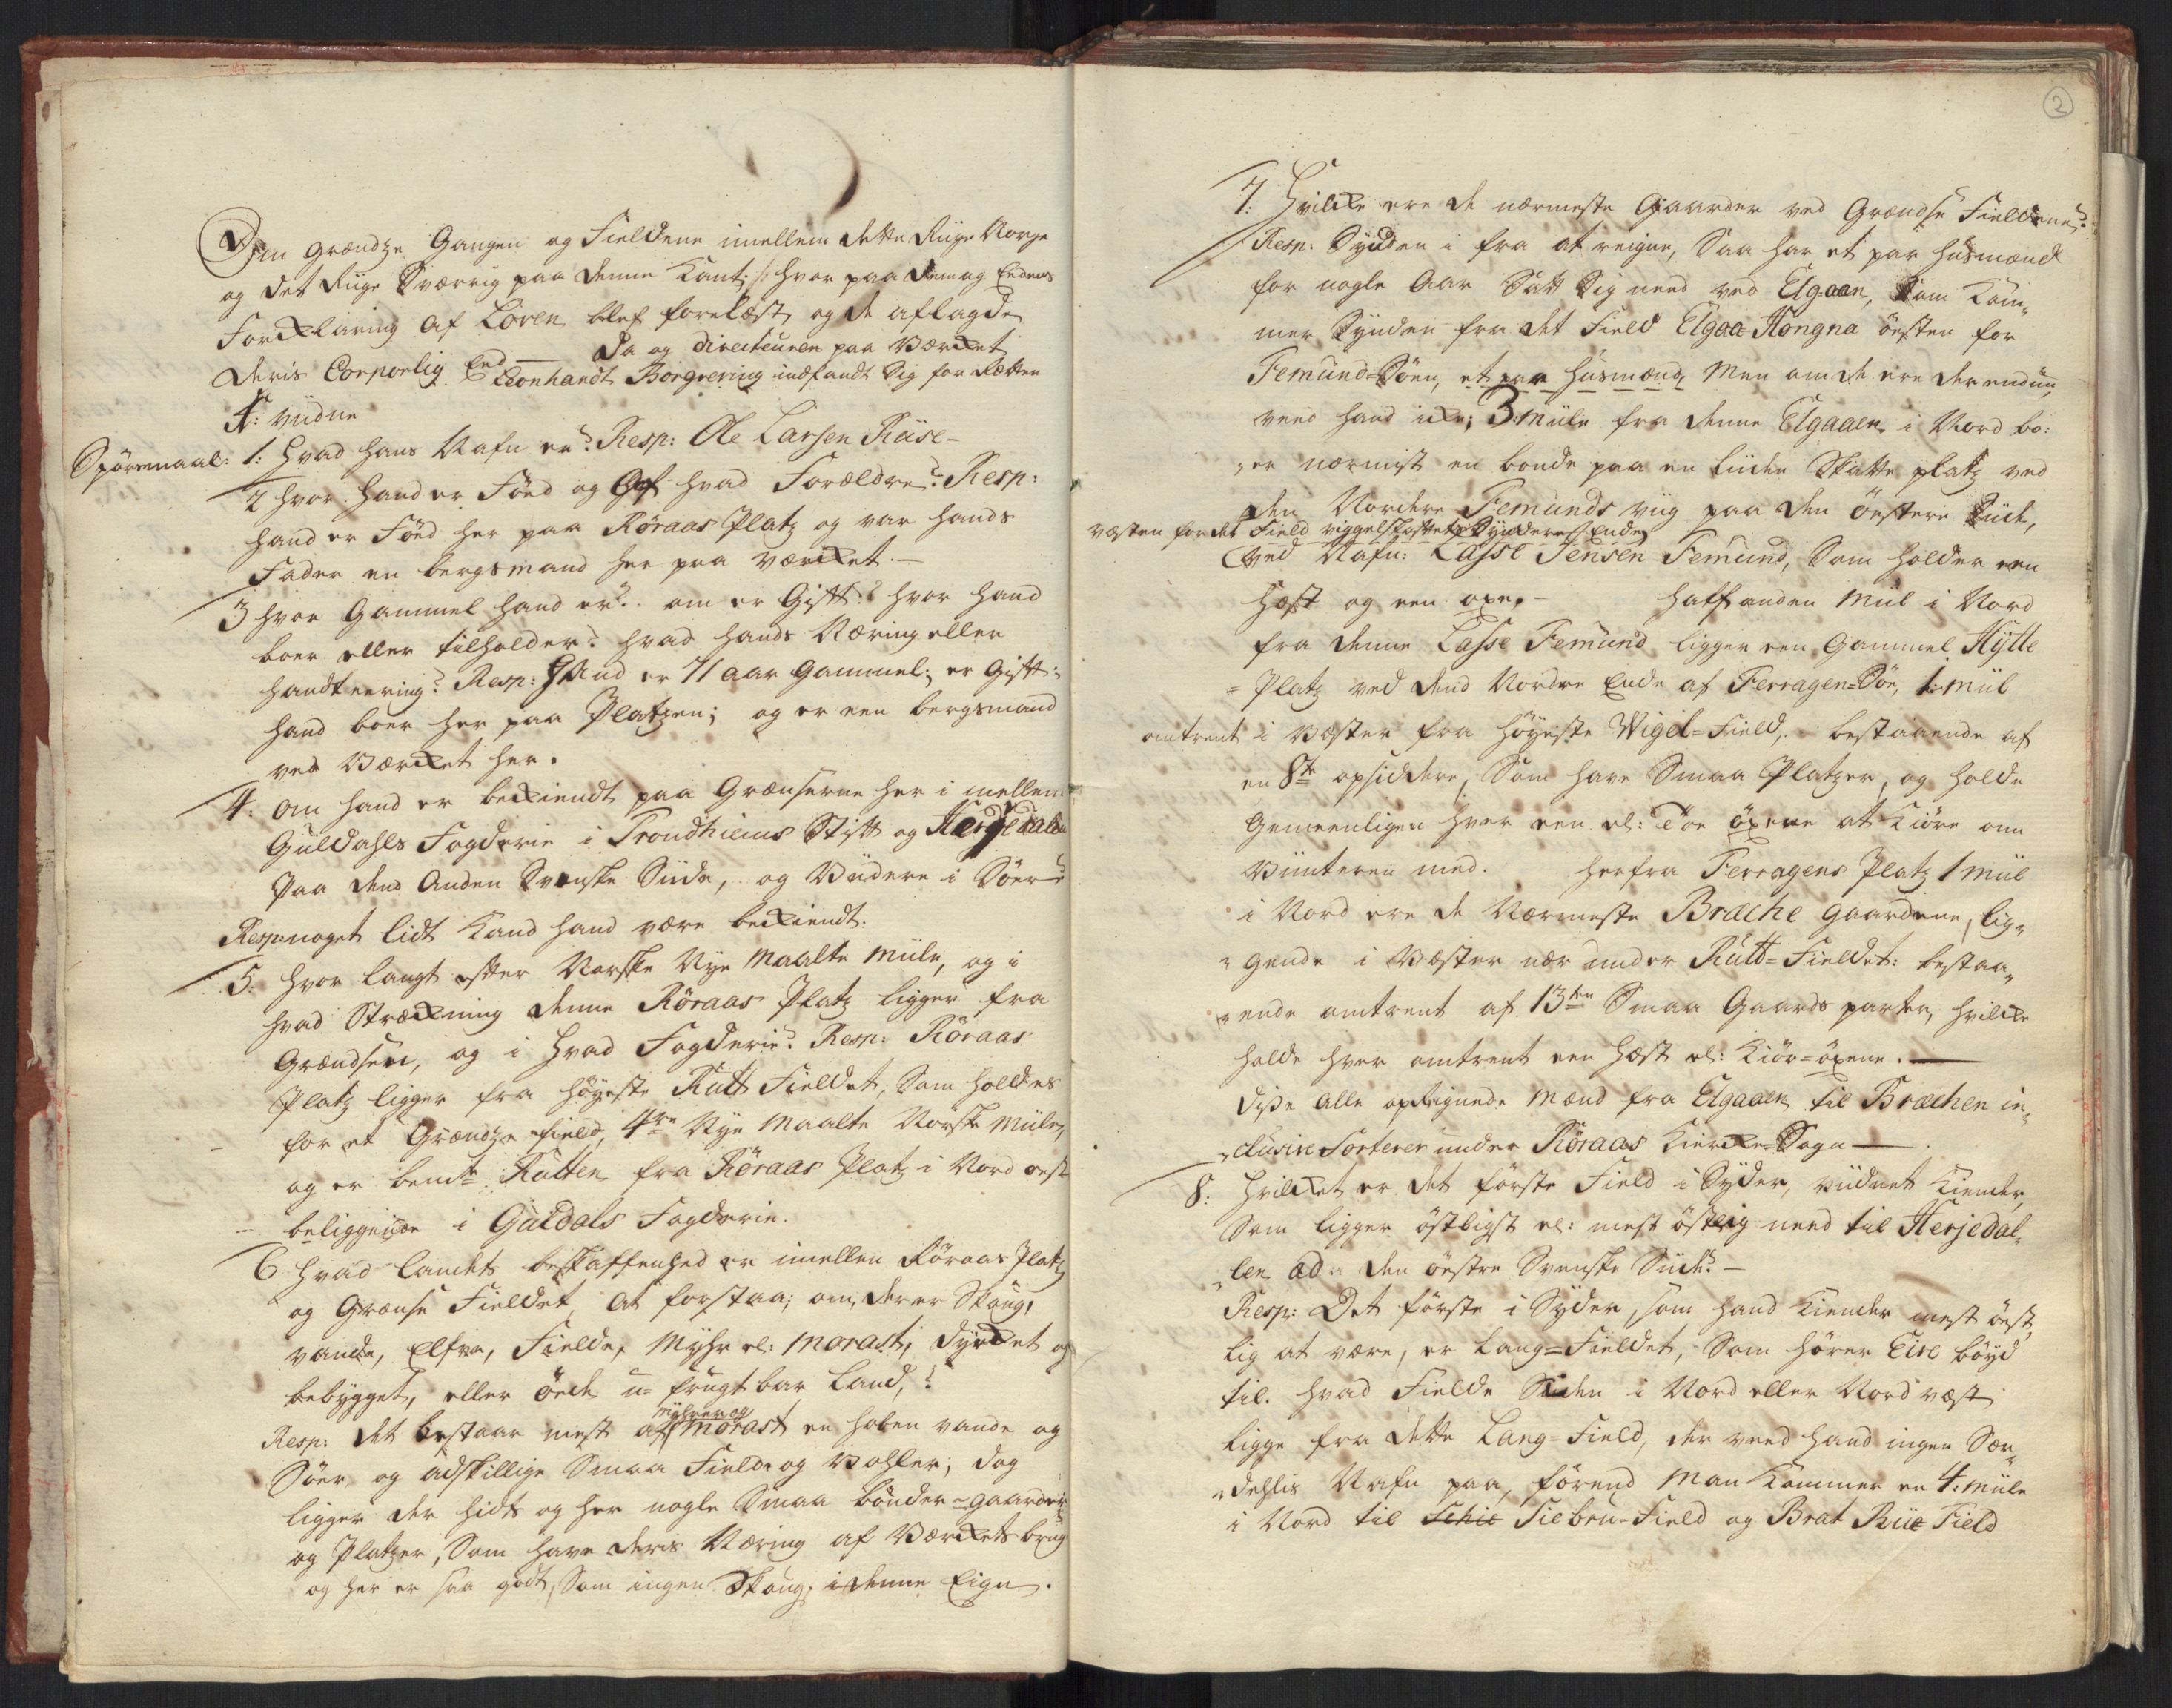 2
Om Grændze Gangen og Fieldene imellem dette Riige Norge
og det Riige Sværrig paa denne Kant; /: hvor paa dem og Eedens
Forklaring af Loven blef forelæst, og de aflagde
deris Corporlig Eed — Da og Directeuren paa Værcket
Leonhardt Borgreving indfandt Sig for Rætten
1: viidne
Spörsmaal: 1: Hvad hans Nafn er? Resp: Ole Larsen Riise -
2 hvor hand er Föed og af hvad Forældre? Resp:
hand er Föed her paa Röraas Platz og var hands
Fader en bergsmand her paa værcket. -
3 hvor Gammel hand er? om er Gift? hvor hand
boer eller tilholder? hvad hands Næring eller
handteering? Resp: Hand er 71 aar gammel; er Gift;
hand boer her paa Platzen; og er een bergsmand
ved Værcket her.
4: om hand er bekiendt paa Grænserne her i mellem
Guldahls Fogderie i Trondhiems Stift og Herjedalen
paa dend anden Svenske Siide, og Viidere i Söer?
Resp: noget lidt kand hand være bekiendt.
5: hvor langt efter Norske Nye maalte miile, og i
hvad Strækning denne Röraas Platz ligger fra
Grændsen, og i hvad Fogderie? Resp: Röraas
Platz ligger fra höyeste Rutt Fieldet, Som holdes
for et Grændze field, 4re Nye maalte Norske miile,
og er bemte Rutten fra Röraas Platz i Nord oest
beliggende i Guldals Fogderie.
6 hvad landets beskaffenhed er imellem Röraas Platz
og Grænse Fieldet, at forstaa; om der er Skoug,
vande, Elfve, Fielde, Myhr el: morast; dyrcket og
bebygget, eller öede u-frugtbar Land,?
Resp: det bestaar mest af myhrer og morast en hoben vande og
Söer og adskillige Smaa Fielde og Vohler; dog
ligger der hidt og her nogle Smaa bönder-gaarder
og Platzer, Som have deris Næring af Værckets brug
og her er saa godt, Som ingen Skoug i denne Eign.
7: Hvilcke ere de nærmeste Gaarder ved Grændse Fieldene?
Resp: Synden i fra at reigne, Saa har et par husmænd
for nogle Aar Satt Sig need ved Elgaaen, Som Kom-
mer Synden fra det Field Elgaa Hongna östen for
Femund-Söen, et par husmænd, Men om de ere der endnu,
veed hand icke; 3: miile fra denne Elgaaen i Nord bo-
er nærmist en bonde paa en liiden Skatte platz ved
den Nordere Femunds viig paa den östere Siide,
væsten for det Field viggelskaftets Syndere Ende
ved Nafn: Lasse Jensen Femund, Som holder een
Hest og een oxe, - halfanden Miil i Nord
fra denne Lasse Femund ligger een gammel Hytte
Platz ved dend Nordre Ende af Ferragen-Söe, 1: miil
omtrent i Væster fra höyeste Wigel-Field, bestaaende af
en 8te opsiddere, Som have Smaa Platzer, og holde
Gemeenligen hver een el: Toe öxene at Kiöre om
Vinteren med. herfra Ferragens Platz 1 miil
i Nord ere de Nærmeste Bræche gaardene, lig-
gende i Væster nær under Rutt-Fieldet: bestaa-
ende omtrent af 13ten Smaa Gaards parter, hvilcke
holde hver omtrent een Hest el: Kiör-öxene. —
Disse alle opreignede mænd fra Elgaaen til Bræchen in-
clusive Sorterer under Röraas Kircke-Sogn —
8: Hvilcket er det förste Field i Syder, viidnet Kiender,
Som ligger östligst el: mest östlig need til Herjedal-
len ad den östre Svenske Siide? —
Resp: Det förste i Syder, som hand Kiender mest öst-
lig at være, er Lang-Fieldet, Som hörer Eire böyd
til. hvad Fielde Siden i Nord eller Nordvæst
ligge fra dette Lang-Field, der veed hand ingen Sær-
dehlis Nafn paa, förend Man Kommer en 4: miile
i Nord til Schie Siebru-Field og Brat Riie Field